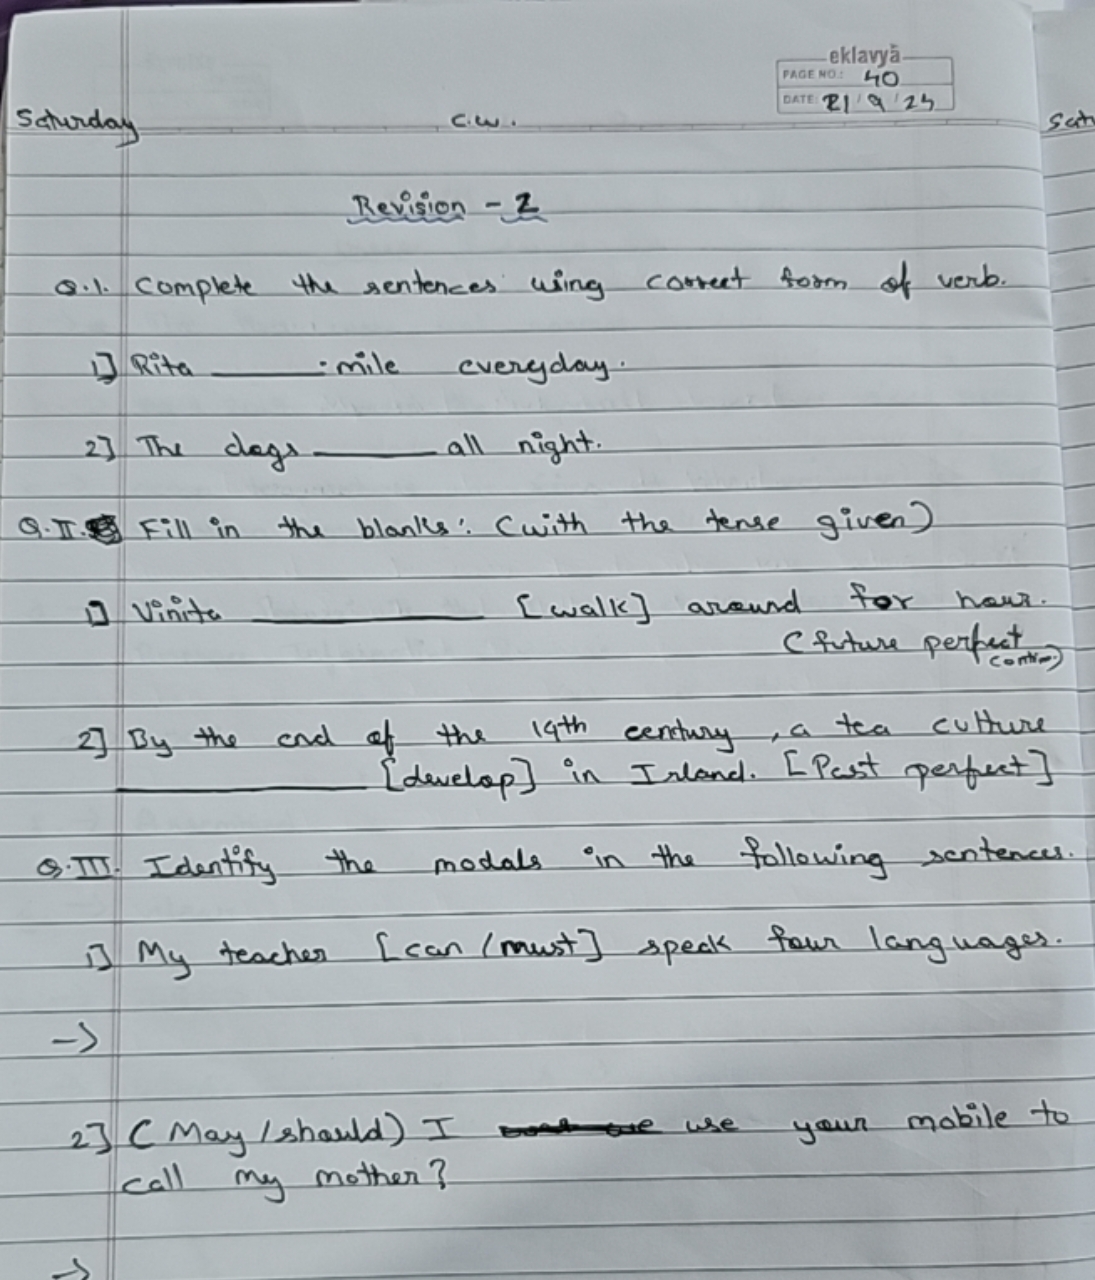 eklavyā
PAGE NO.: 40
DATE: 21/9/24
Saturday C.W.
Revision - 2
Q.1. Complete the sentences using correct form of verb.
1] Rita ______ mile everyday.
2] The dogs ______ all night.
Q.II. Fill in the blanks: (with the tense given)
1] Vinita ____________ [walk] around for hour.
(future perfect
contin.)
2] By the end of the 19th century, a tea culture
____________ [develop] in Irland. [Past perfect]
Q.III. Identify the modals in the following sentences.
1] My teacher [can / must] speak four languages.
->
2] (May / should) I use your mobile to
call my mother?
->